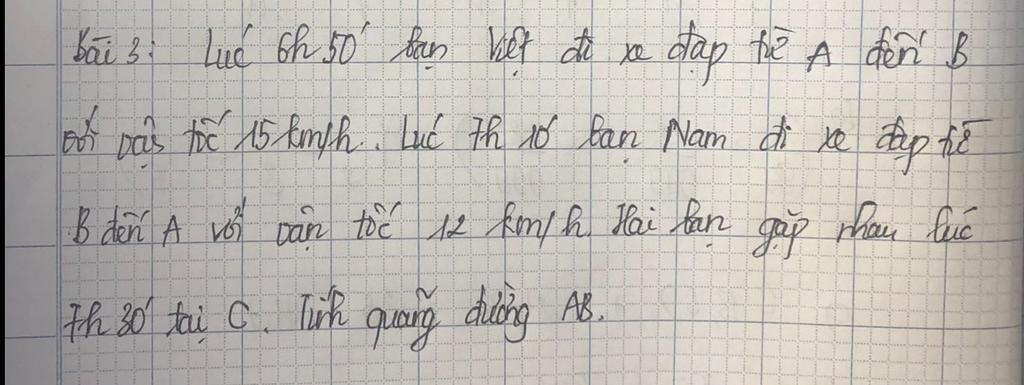 Bài 3: Lúc 6h 50' bạn Việt đi xe đạp từ A đến B
với vận tốc 15 km/h. Lúc 7h 10' bạn Nam đi xe đạp từ
B đến A với vận tốc 12 km/h. Hai bạn gặp nhau lúc
7h 30' tại C. Tính quãng đường AB.